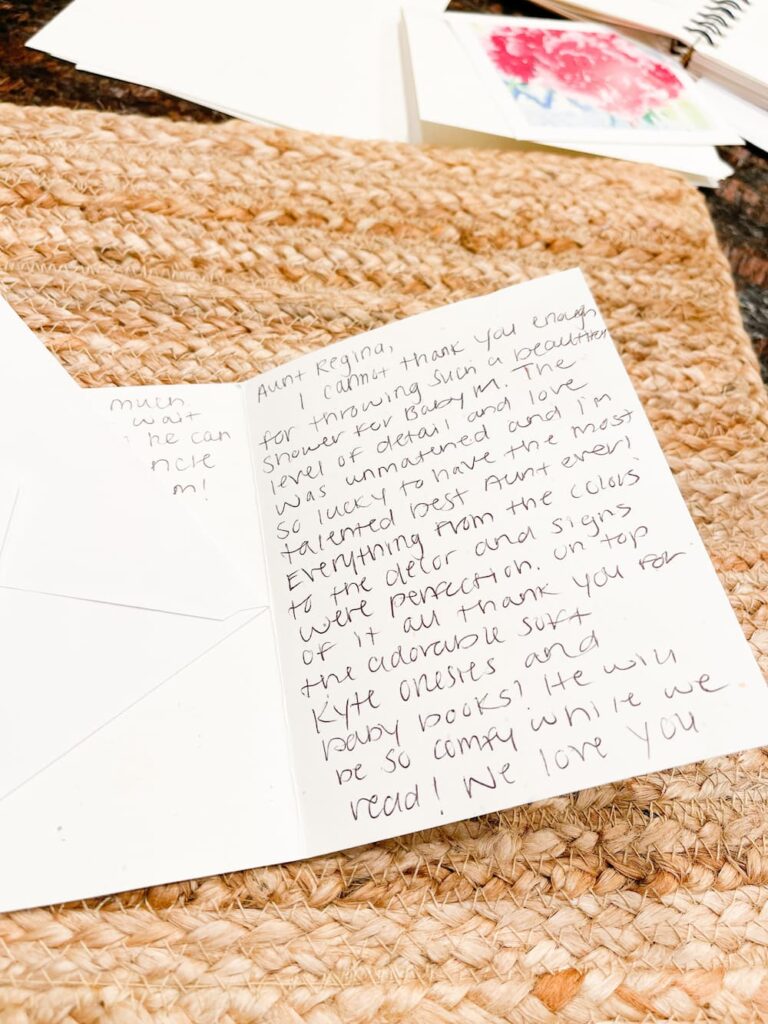 Aunt Regina,
I cannot thank you enough
for throwing such a beautiful
shower for Baby M. The
level of detail and love
was unmatched and I'm
so lucky to have the most
talented best Aunt ever!
Everything from the colors
to the decor and signs
were perfection. On top
of it all thank you for
the adorable soft
Kyte onesies and
baby books! He will
be so comfy while we
read! We love you
much
wait
he can
ncle
m!